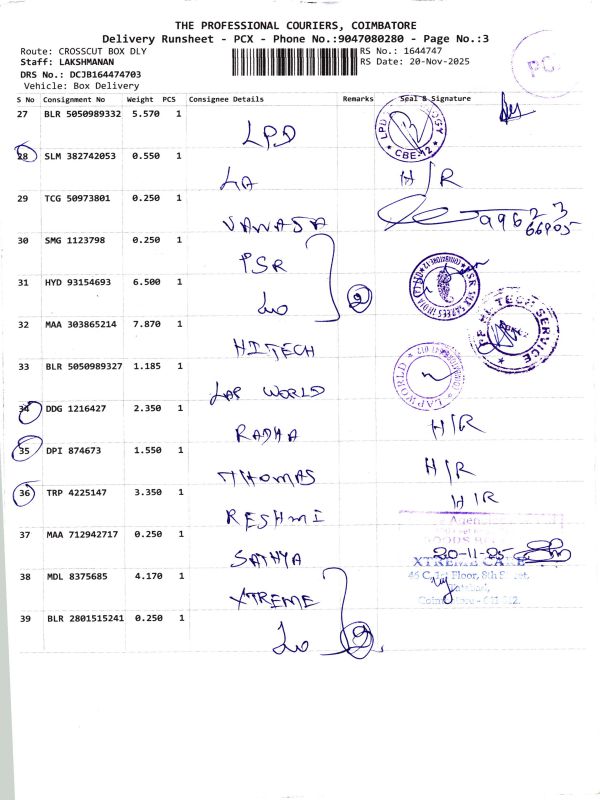 THE PROFESSIONAL COURIERS, COIMBATORE
Delivery Runsheet - PCX - Phone No.:9047080280 - Page No.:3
Route: CROSSCUT BOX DLY RS No.: 1644747
Staff: LAKSHMANAN RS Date: 20-Nov-2025
DRS No.: DCJB164474703
Vehicle: Box Delivery
S No Consignment No Weight PCS Consignee Details Remarks Seal & Signature
27 BLR 5050989332 5.570 1
LPD
CBE-12
28 SLM 382742053 0.550 1
LA H/R
29 TCG 50973801 0.250 1
VANAJA 99623
66905
30 SMG 1123798 0.250 1
PSR
31 HYD 93154693 6.500 1
Lo 2
32 MAA 303865214 7.870 1
HITECH
HI TECH SERVICE
33 BLR 5050989327 1.185 1
LAP WORLD
LAPWORLD
34 DDG 1216427 2.350 1
RADHA H/R
35 DPI 874673 1.550 1
THOMAS H/R
36 TRP 4225147 3.350 1
RESHMI H/R
37 MAA 712942717 0.250 1
SATHYA 20-11-25
XTREME
38 MDL 8375685 4.170 1
XTREME
39 BLR 2801515241 0.250 1
Lo 2